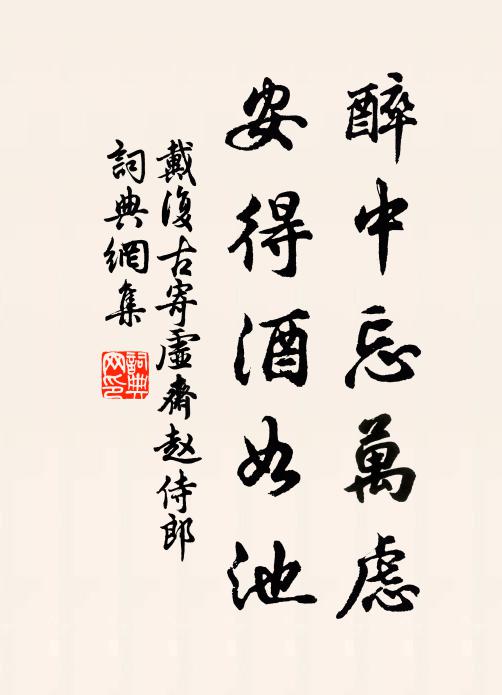 醉中忘萬慮
安得酒如池
戴復古寄虛齋赵侍郎
詞典網集
詞典网印